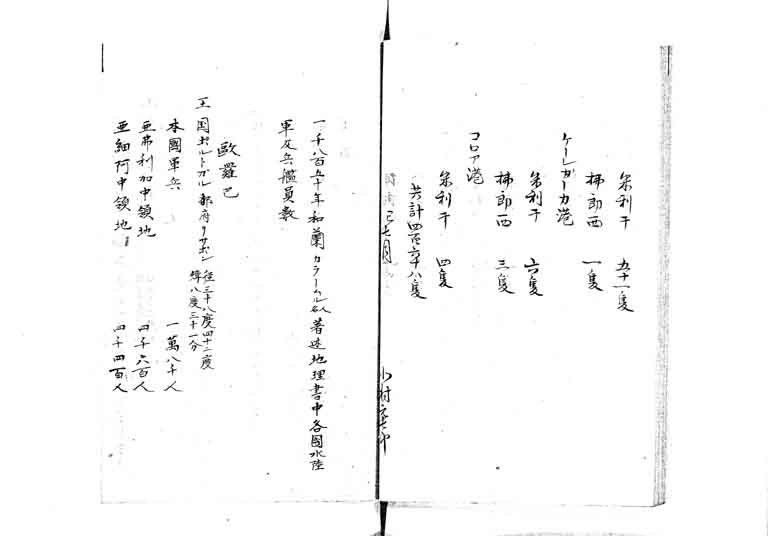 米利干　五十一隻
拂郎西　一隻
ケーレガーカ港
米利干　六隻
拂郎西　三隻
コロア港
米利干　四隻
共計四百六十八隻
七月　小村
一千八百五十年和蘭カラームル 名人 著述地理書中各国水陸
軍及兵艦員数
歐羅巴
王国ポルトガル 都府リサボン 径三十八度四十二度 緯八度三十一分
本國軍兵　一萬八千人
亜弗利加中領地　四千六百人
亜細阿中領地　四千四百人